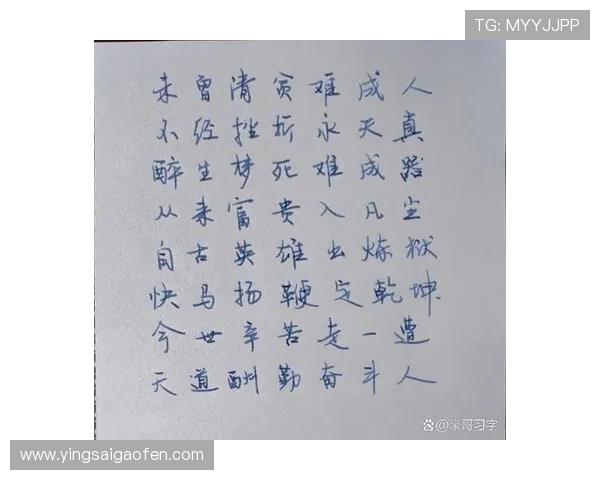 TG: MYYJJPP
未曾清贫难成人
不经挫折永天真
醉生梦死难成器
从来富贵入凡尘
自古英雄出炼狱
快马扬鞭定乾坤
今世辛苦走一遭
天道酬勤奋斗人
豪哥习字
www.yingsaigaofen.com